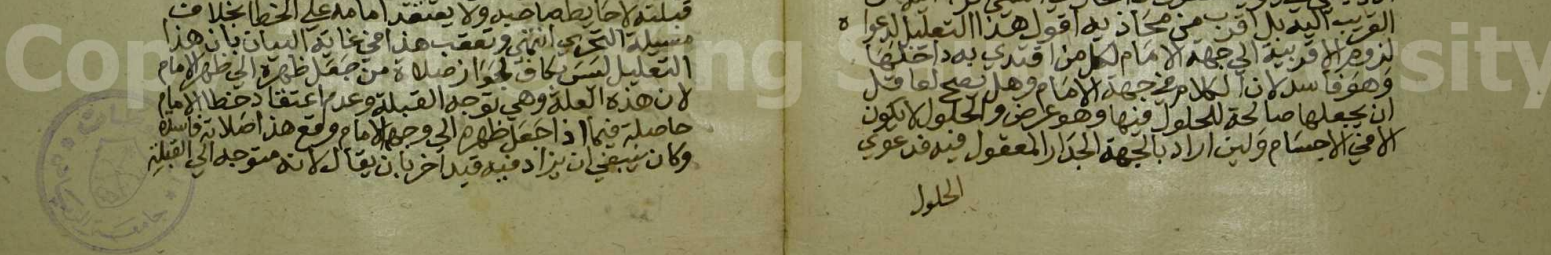 القريب اليه بل اقرب من محاذ به اقول هذا التعليل لدعوا ه
لزوم الاقربية الي جهة الامام لكل من اقتدي به داخلها
وهو فاسد لان الكلام في جهة الامام وهل يصح لعاقل
ان يجعلها صالحة للحلول فيها وهو عرض والحلول لا يكون
الا في الاجسام ولين اراد بالجهة الجدار المعقول فيه فدعوي
الحلول
قبلته لا حايط صاحبه ولا يعتقد امامه علي الخطا بخلاف
مسيلة التحري انتهي وتعقب هذا في غاية البيان بان هذا
التعليل ليس بكاف لجواز صلاة من جعل ظهره الي ظهر الامام
لان هذه العلة وهي توجه القبلة وعدم اعتقاد خطا الامام
حاصلة فيما اذا جعل ظهره الي وجه الامام ومع هذا صلاته فاسدة
وكان ينبغي ان يزاد فيه قيد اخر بان يقال لانه متوجه الي القبلة
Cop
ng S
sity
جامعة